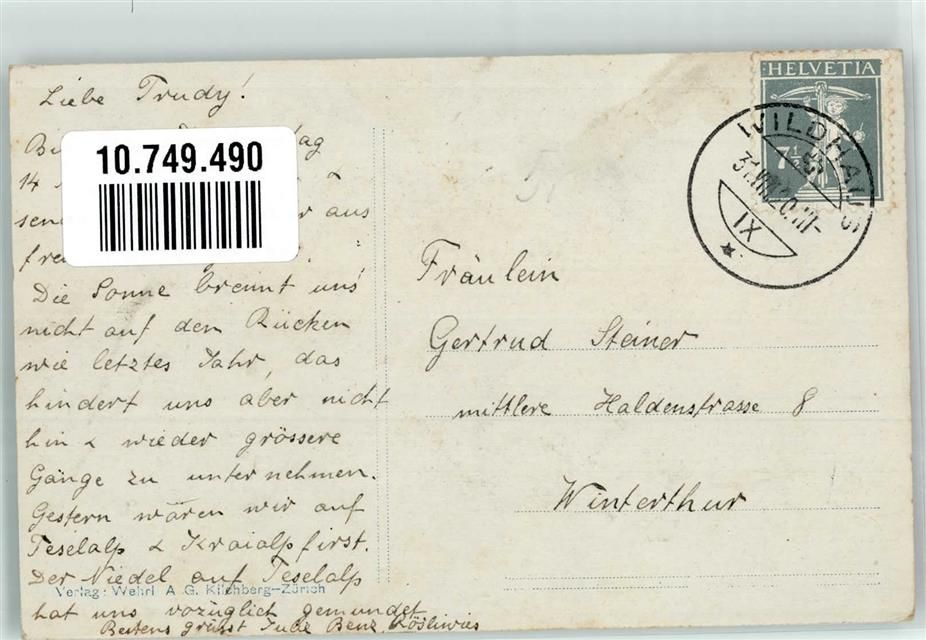 Liebe Trudy!
10.749.490
14
aus
Die Sonne brennt uns
nicht auf den Rücken
wie letztes Jahr, das
hindert uns aber nicht
hin & wieder grössere
Gänge zu unternehmen.
Gestern wären wir auf
Teselalp & Kraialpfirst.
Der Niedel auf Teselalp
hat uns vozüglich gemundet
Bestens grüsst
Benz.
Verlag: Wehrli A G. Kilchberg-Zürich
HELVETIA
7½
WILDHAUS
IX
Fräulein
Gertrud Steiner
mittlere Haldenstrasse 8
Winterthur